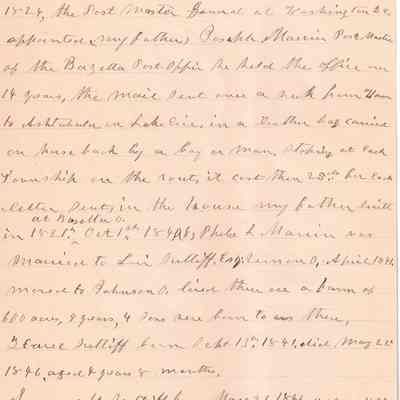 1828, the Post Master General at Washington D.C.
appointed my father, Joseph Marvin Post Master
of the Bazetta Post Office he held the office over
14 years, the mail sent once a week from
to Ashtabula on Lake Erie, in a leather bag carried
on horse back by a boy or man, stoping at each
Township on the rout, it cost then 25 cts for each
letter sent, in the house my father built
at Bazetta O.
in 1821, Oct 1st 1840, I, Phebe L Marvin was
married to Sutliff, Esq. Vernon O, April 1841,
moved to Johnson O. lived there on a farm of
600 acres, 9 years, 4 sons were born to us there,
Sutliff born Sept 13th 1841, died May 20
1846, aged 4 years 8 months,